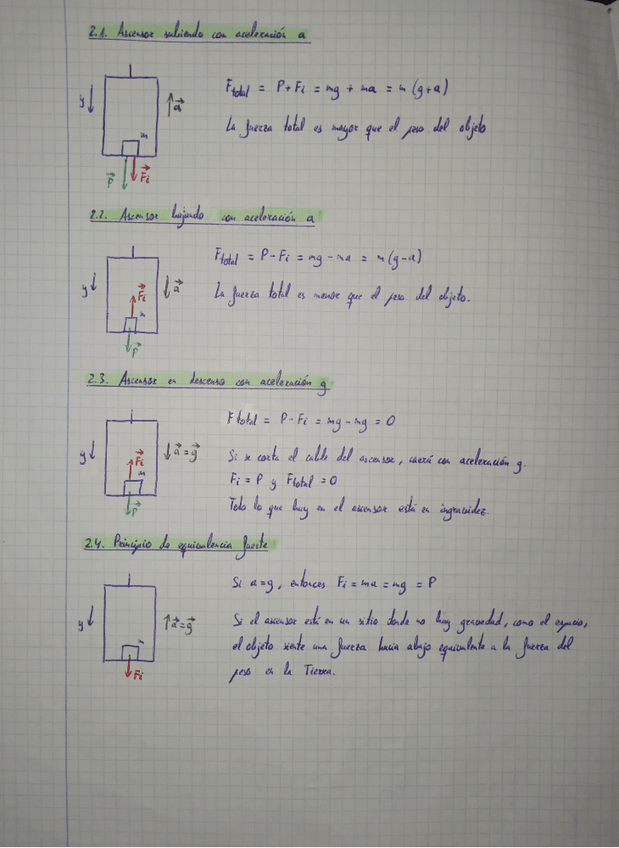 2.1. Ascensor subiendo con aceleración a
y
a
m
P
Fi
Ftotal = P+Fi = mg + ma = m (g+a)
La fuerza total es mayor que el peso del objeto
2.2. Ascensor bajando con aceleración a
y
Fi
a
m
P
Ftotal = P-Fi = mg-ma = m(g-a)
La fuerza total es menor que el peso del objeto.
2.3. Ascensor en descenso con aceleración g
y
Fi
a=g
m
P
Ftotal = P-Fi = mg-mg = 0
Si se corta el cable del ascensor, caerá con aceleración g.
Fi = P y Ftotal = 0
Todo lo que hay en el ascensor está en ingravidez.
2.4. Principio de equivalencia fuerte
y
a=g
m
Fi
Si a=g, entonces Fi = ma = mg = P
Si el ascensor está en un sitio donde no hay gravedad, como el espacio,
el objeto siente una fuerza hacia abajo equivalente a la fuerza del
peso en la Tierra.